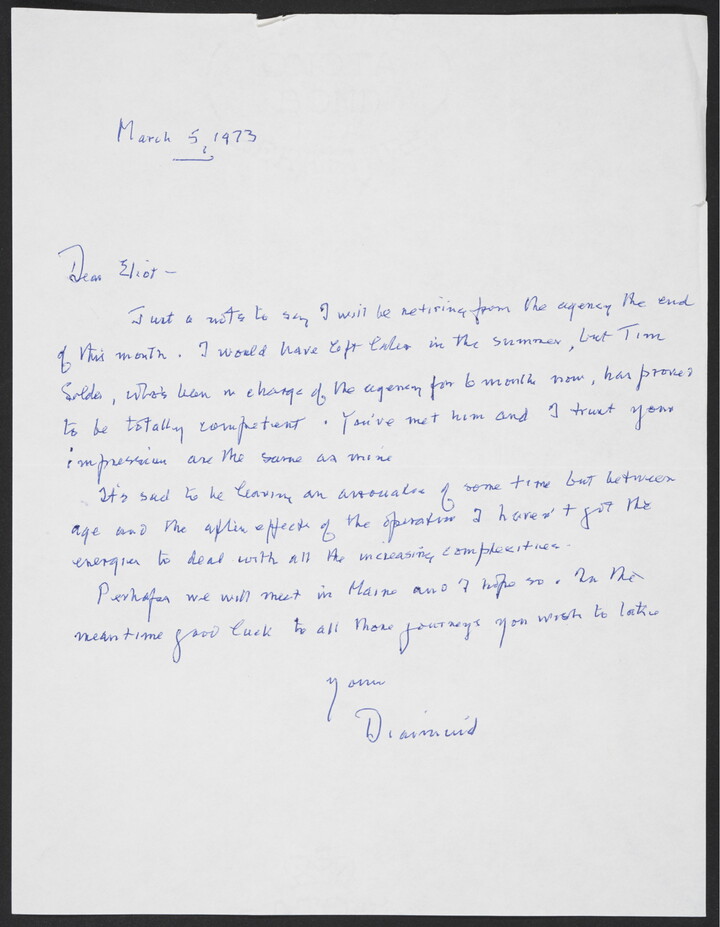 March 5, 1973
Dear Eliot –
Just a note to say I will be retiring from the agency the end
of this month. I would have left later in the summer, but Tim
Seldes, who's been in charge of the agency for 6 months now, has proved
to be totally competent. You've met him and I trust your
impressions are the same as mine
It's sad to be leaving an association of some time but between
age and the after effects of the operation I haven't got the
energies to deal with all the increasing complexities.
Perhaps we will meet in Maine and I hope so. In the
meantime good luck to all those journeys you wish to take
Yours
Diarmuid